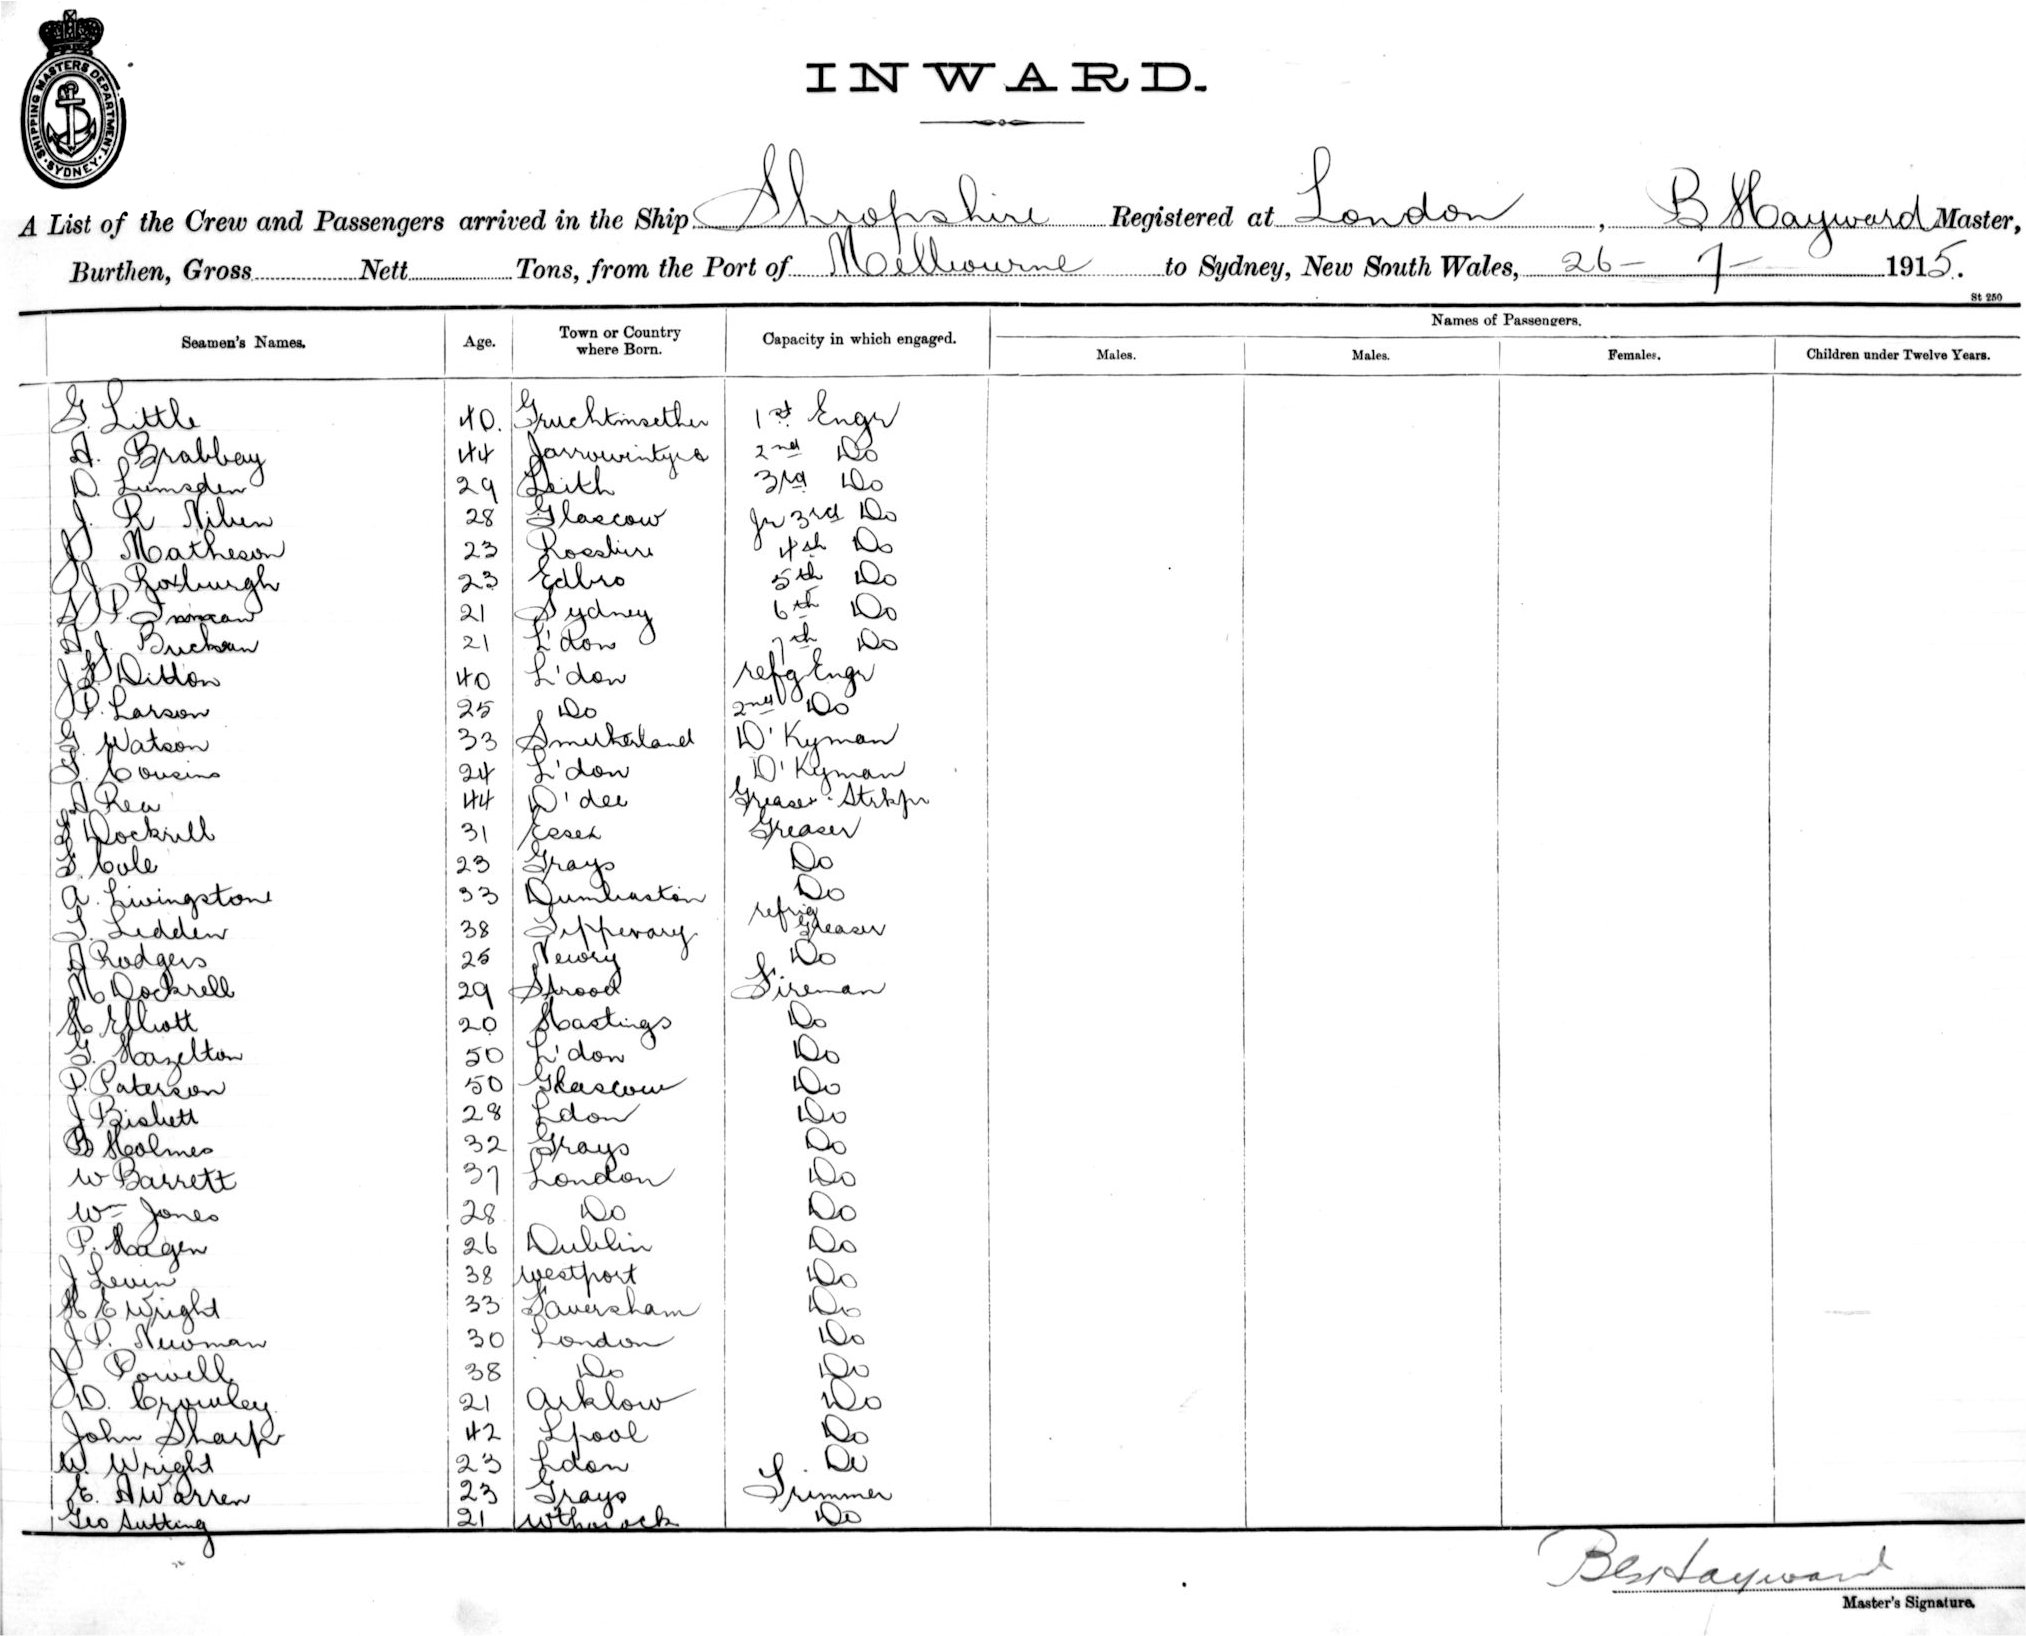 SHIPPING MASTERS DEPARTMENT. SYDNEY
INWARD.
A List of the Crew and Passengers arrived in the Ship Shropshire Registered at London, B Hayward Master,
Burthen, Gross Nett Tons, from the Port of Melbourne to Sydney, New South Wales, 26- 7- 1915.
St 250
Seamen's Names. Age. Town or Country where Born. Capacity in which engaged. Names of Passengers.
Males. Males. Females. Children under Twelve Years.
G. Little 40. 1st Engr
A. Brabbay 44 2nd Do
D. Lumsden 29 Leith 3rd Do
J. R 28 Glascow Jr 3rd Do
J. Matheson 23 Rosshire 4th Do
J. Roxburgh 23 Edbro 5th Do
21 Sydney 6th Do
A. J. 21 L'don 7th Do
Ditton 40 L'don refg Engr
P. Larson 25 Do 2nd Do
G. Watson 33 D'Kyman
F. Cousins 24 L'don D'Kyman
A Rea 44 D'dee Greaser Strkpr
Dockrill 31 Essex Greaser
F. Cole 23 Grays Do
A. Livingstone 33 Do
T. Ledden 38 Tipperary refrig Greaser
A Rodgers 25 Newry Do
M Dockrell 29 Strood Fireman
H Elliott 20 Hastings Do
G. Hazelton 50 L'don Do
P. Paterson 50 Glascow Do
J Bishett 28 Ldon Do
B Holmes 32 Grays Do
W Barrett 37 London Do
Wm Jones 28 Do Do
P. Hagen 26 Dublin Do
J Levin 38 Westport Do
H E Wright 33 Faversham Do
J P. Newman 30 London Do
J Powell 38 Do Do
D. Crowley 21 Arklow Do
John Sharp 42 Lpool Do
W. Wright 23 Ldon Do
E. A Warren 23 Grays Trimmer
Geo Sutting 21 Do
Hayward
Master's Signature.